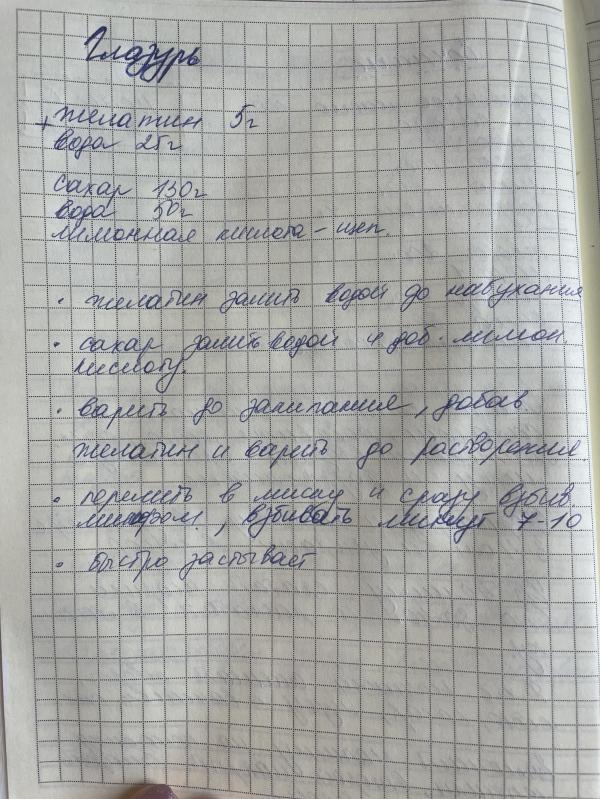 Глазурь
+ желатин 5г
вода 25г
сахар 130г
вода 50г
лимонная кислота - щеп.
• желатин залить водой до набухания
• сахар залить водой и доб. лимон.
кислоту.
• варить до закипания, добав
желатин и варить до растворения
• перелить в миску и сразу взбив.
миксером, взбивать минут 7-10
• быстро застывает